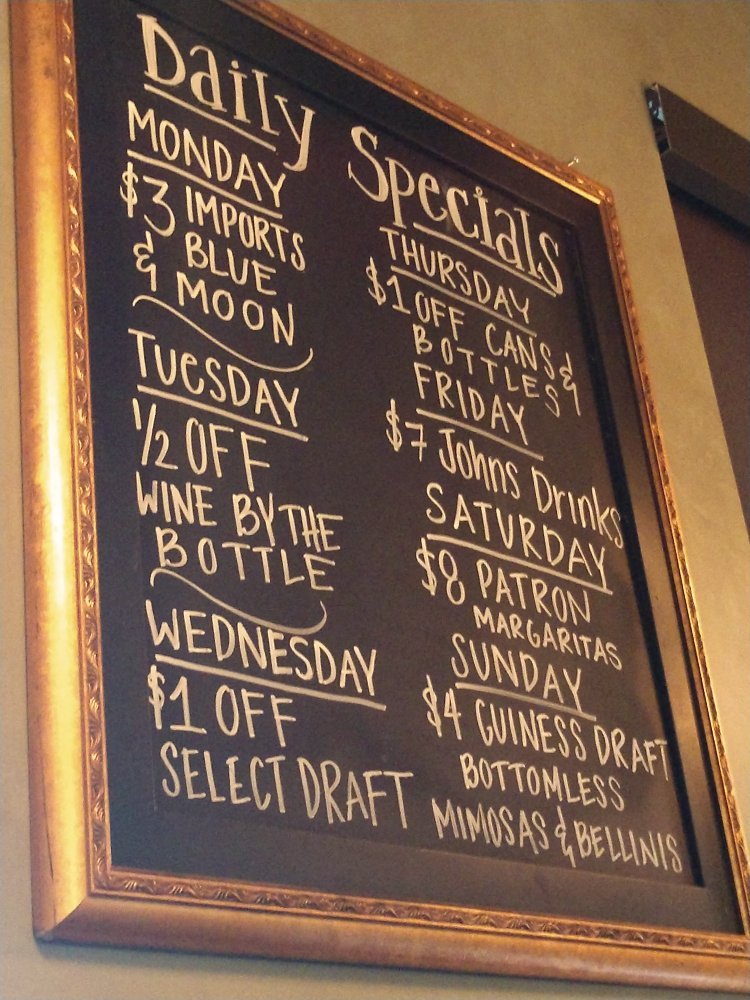 Daily Specials
MONDAY
$3 IMPORTS
& BLUE
MOON
TUESDAY
1/2 OFF
WINE BY THE
BOTTLE
WEDNESDAY
$1 OFF
SELECT DRAFT
THURSDAY
$1 OFF CANS &
BOTTLES
FRIDAY
$7 Johns Drinks
SATURDAY
$8 PATRON
MARGARITAS
SUNDAY
$4 GUINESS DRAFT
BOTTOMLESS
MIMOSAS & BELLINIS